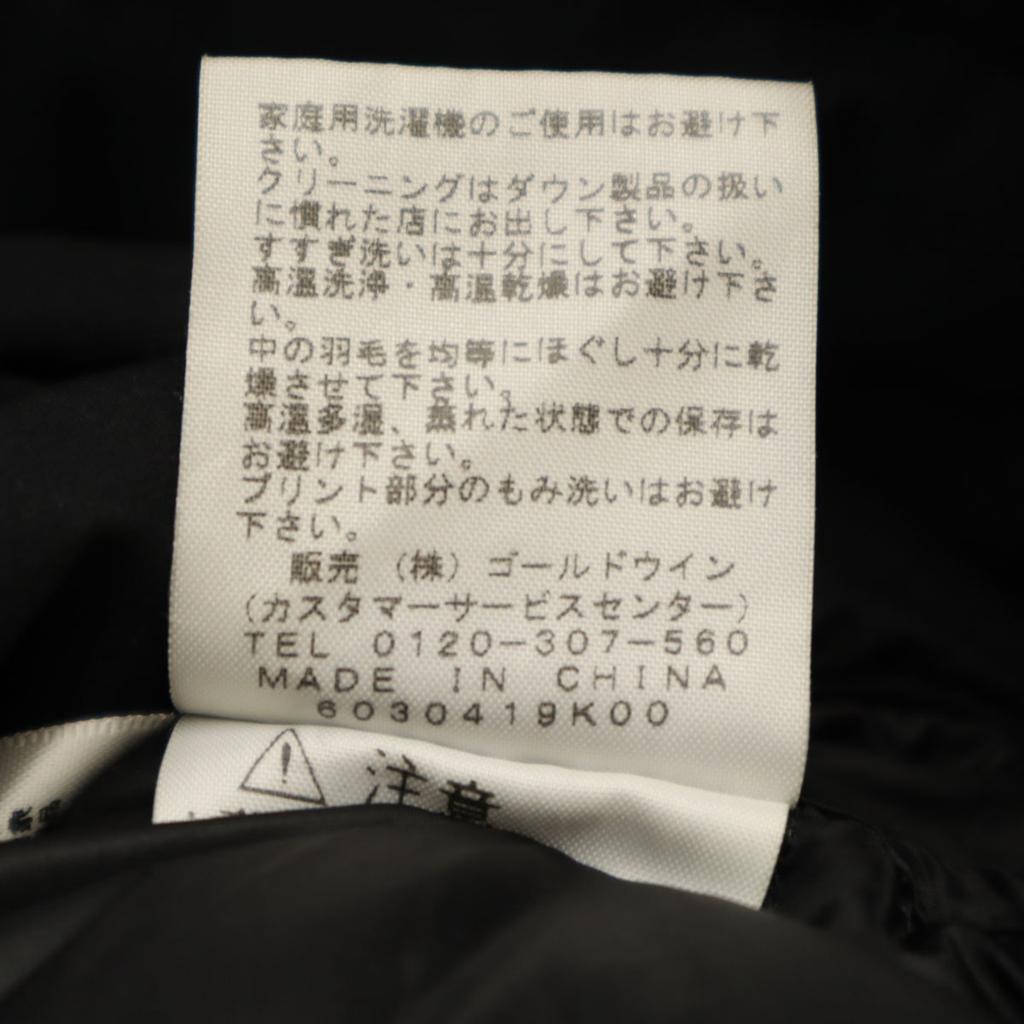 家庭用洗濯機のご使用はお避け下
さい。
クリーニングはダウン製品の扱い
に慣れた店にお出し下さい。
すすぎ洗いは十分にして下さい。
高温洗浄・高温乾燥はお避け下さ
い。
中の羽毛を均等にほぐし十分に乾
燥させて下さい。
高温多湿、蒸れた状態での保存は
お避け下さい。
プリント部分のもみ洗いはお避け
下さい。
販売 (株) ゴールドウイン
(カスタマーサービスセンター)
TEL 0120-307-560
MADE IN CHINA
6030419K00
注意